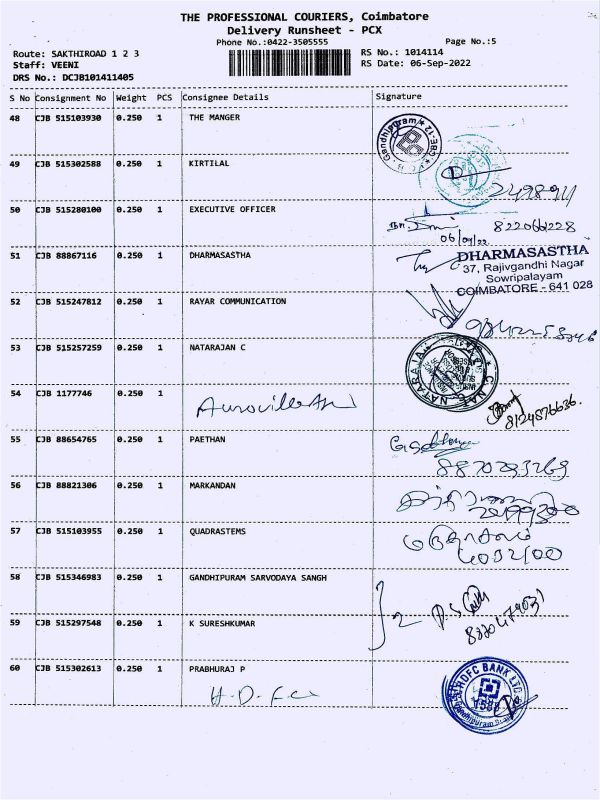 THE PROFESSIONAL COURIERS, Coimbatore
Delivery Runsheet - PCX
Phone No.:0422-3505555 Page No.:5
Route: SAKTHIROAD 1 2 3 RS No.: 1014114
Staff: VEENI RS Date: 06-Sep-2022
DRS No.: DCJB101411405
S No Consignment No Weight PCS Consignee Details Signature
48 CJB 515103930 0.250 1 THE MANGER
Gandhipuram
49 CJB 515302588 0.250 1 KIRTILAL
50 CJB 515280100 0.250 1 EXECUTIVE OFFICER
822066228
06/09/22
51 CJB 88867116 0.250 1 DHARMASASTHA
DHARMASASTHA
37, Rajivgandhi Nagar
Sowripalayam
COIMBATORE - 641 028
52 CJB 515247812 0.250 1 RAYAR COMMUNICATION
53 CJB 515257259 0.250 1 NATARAJAN C
54 CJB 1177746 0.250 1
8124876636.
55 CJB 88654765 0.250 1 PAETHAN
8870293269
56 CJB 88821306 0.250 1 MARKANDAN
57 CJB 515103955 0.250 1 QUADRASTEMS
58 CJB 515346983 0.250 1 GANDHIPURAM SARVODAYA SANGH
59 CJB 515297548 0.250 1 K SURESHKUMAR
60 CJB 515302613 0.250 1 PRABHURAJ P
HDFC BANK LTD
1588